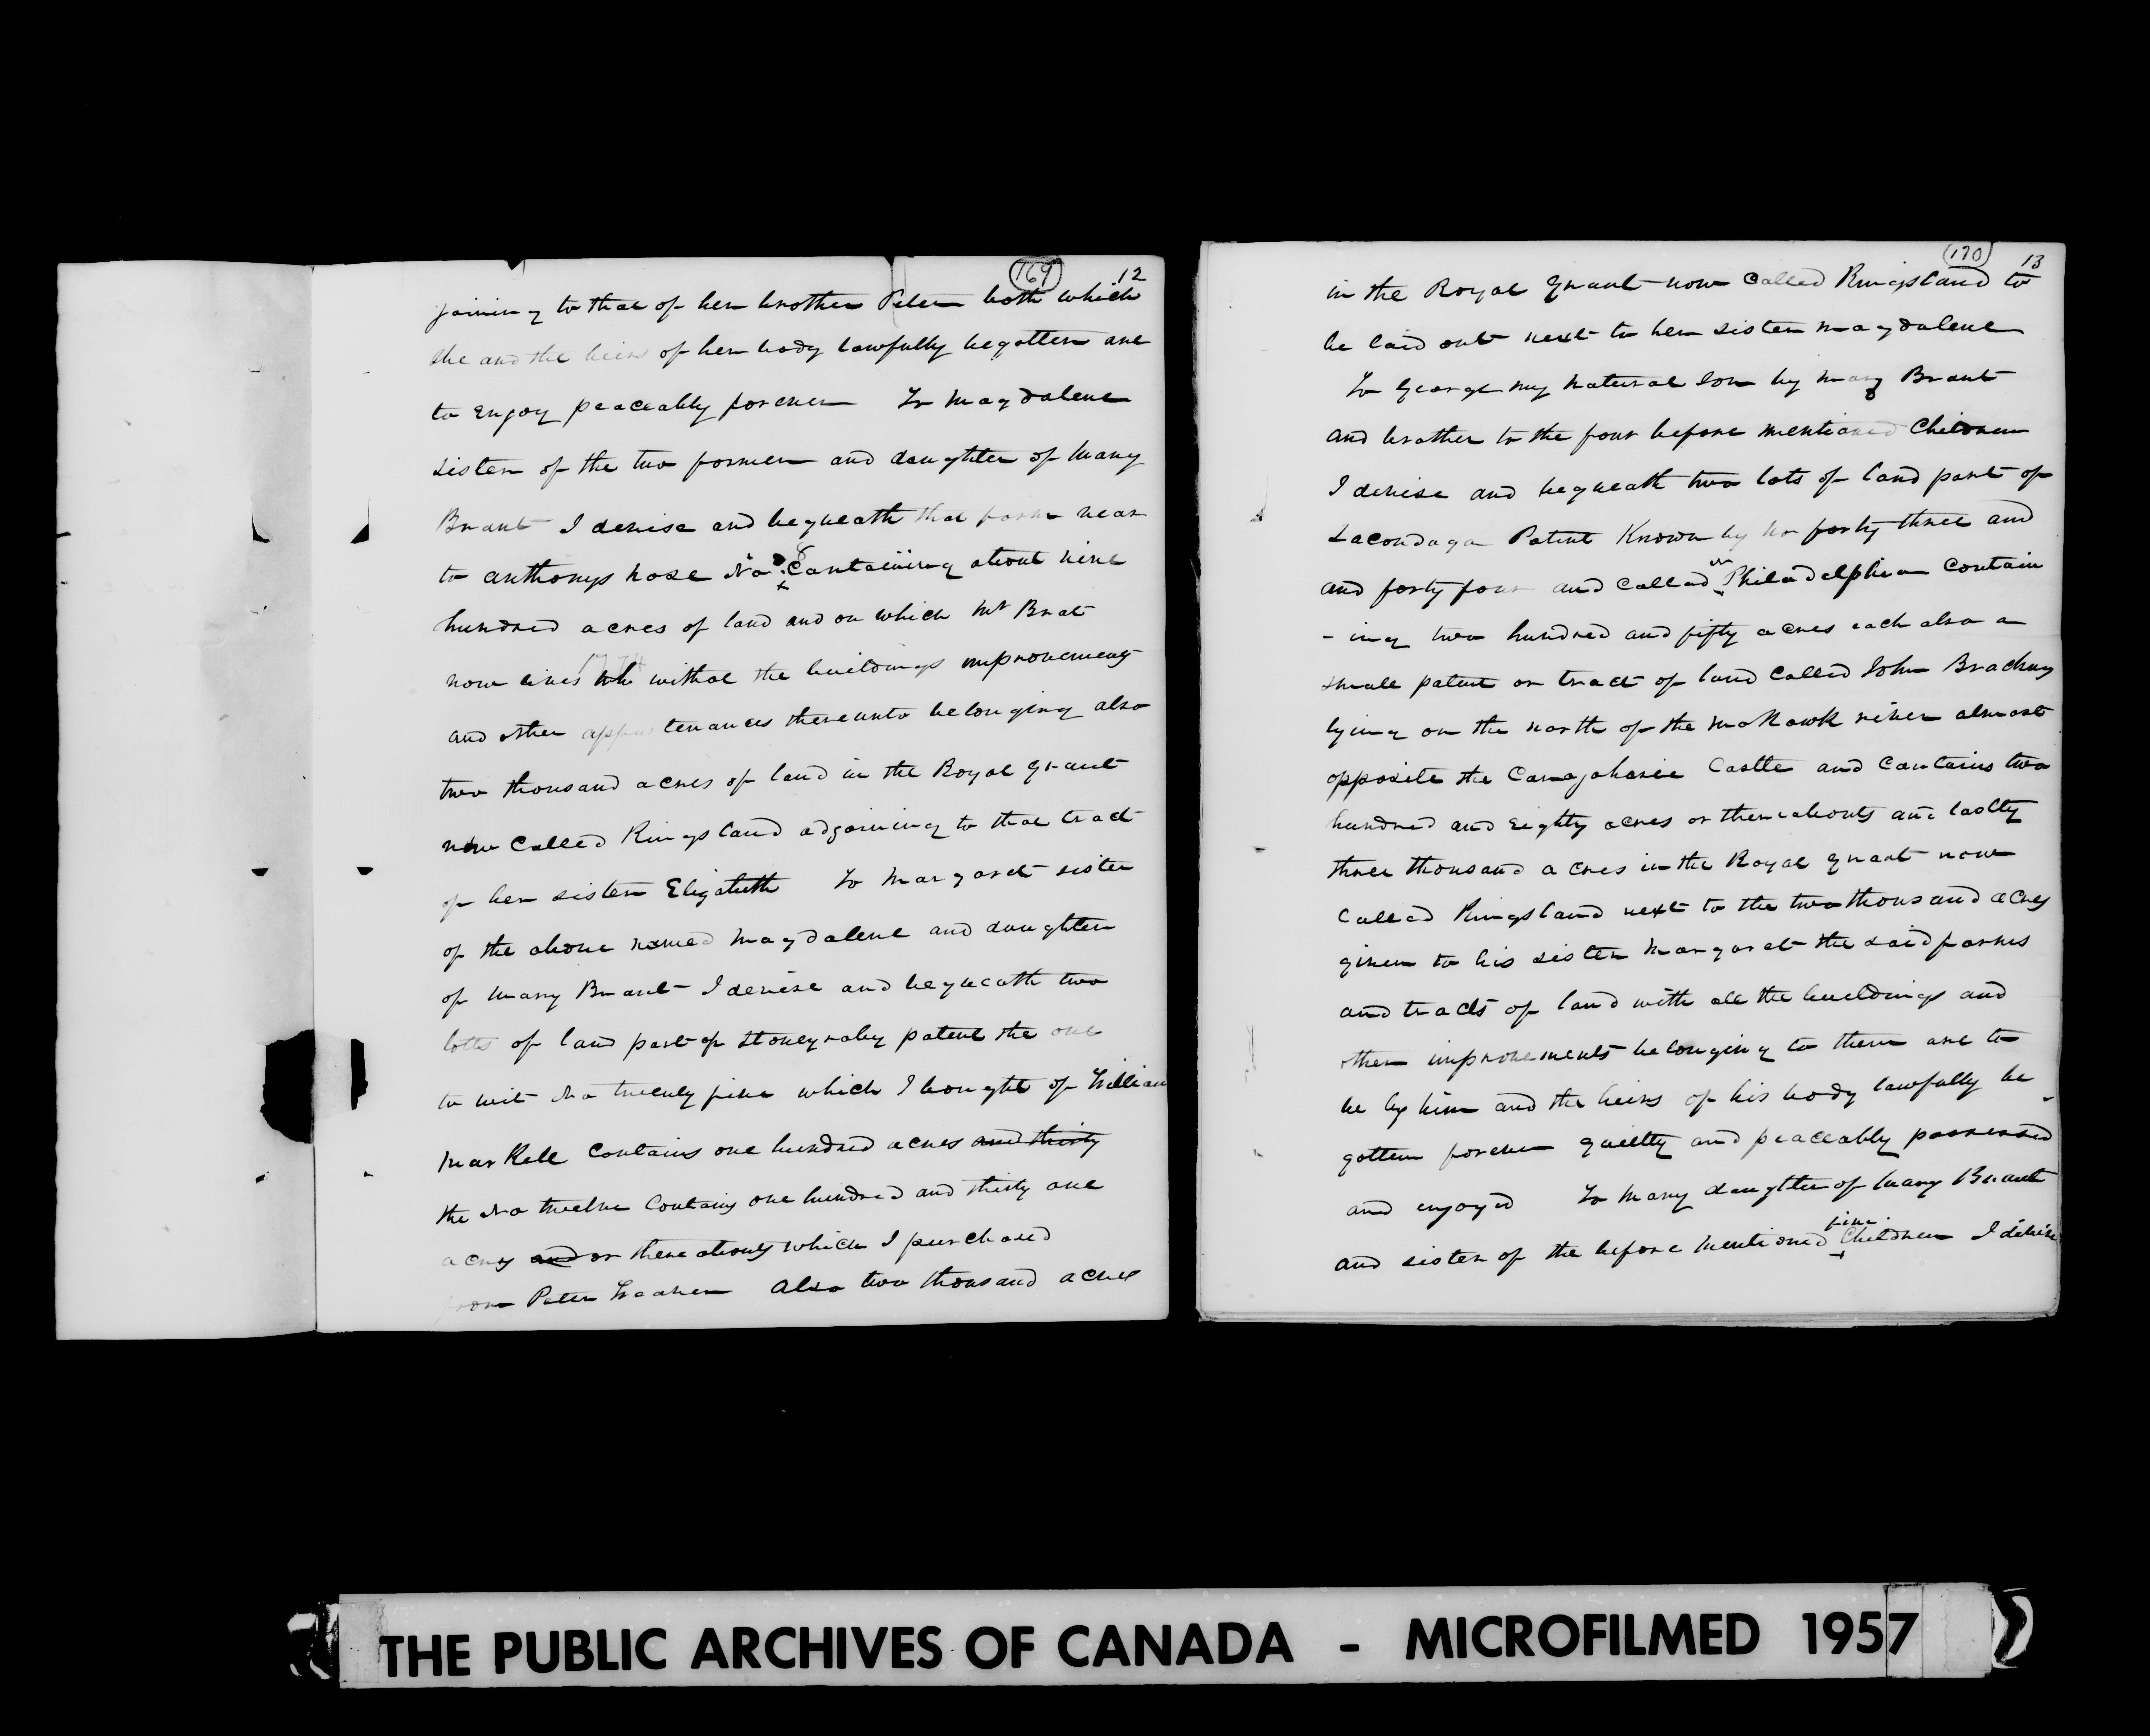 169 12
joining to that of her brother Peter both which
she and the heirs of her body lawfully begotten are
to enjoy peaceably forever To Magdalene
sister of the two former and daughter of Mary
Brant I devise and bequeath that farm near
to anthonys nose No Containing about nine
hundred acres of land and on which Mr Brat
now lives withal the buildings improvements
and other appurtenances thereunto belonging also
two thousand acres of land in the Royal grant
now Called Kingsland adjoining to that tract
of her sister Elizabeth To Margaret sister
of the above named Magdalene and daughter
of Mary Brant I devise and bequeath two
lotts of land part of Stoneyraby patent the one
to wit No twenty five which I bought of William
Markell Contains one hundred acres and thirty
the No twelve Contains one hundred and thirty one
acres and or thereabouts which I purchased
from Peter Weaver Also two thousand acres
170 13
in the Royal Grant now Called Kingsland to
be laid out next to her sister Magdalene
To George my natural Son by Mary Brant
and brother to the four before mentioned Children
I devise and bequeath two lots of land part of
Sacondaga Patent Known by No forty three and
and forty four and called or Philadelphia Contain
- ing two hundred and fifty acres each also a
small patent or tract of land Called John Brackers
lying on the north of the Mohawk river almost
opposite the Canajoharie Castle and Contains two
hundred and Eighty acres or thereabouts and lastly
three thousand acres in the Royal grant now
Called Kingsland next to the two thousand acres
given to his sister Margaret the said farms
and tracts of land with all the buildings and
other improvements belonging to them are to
be by him and the heirs of his body lawfully be -
gotten forever quietly and peaceably possessed
and enjoyed To Mary daughter of Mary Brant
and sister of the before mentioned five Children I devise
THE PUBLIC ARCHIVES OF CANADA - MICROFILMED 1957